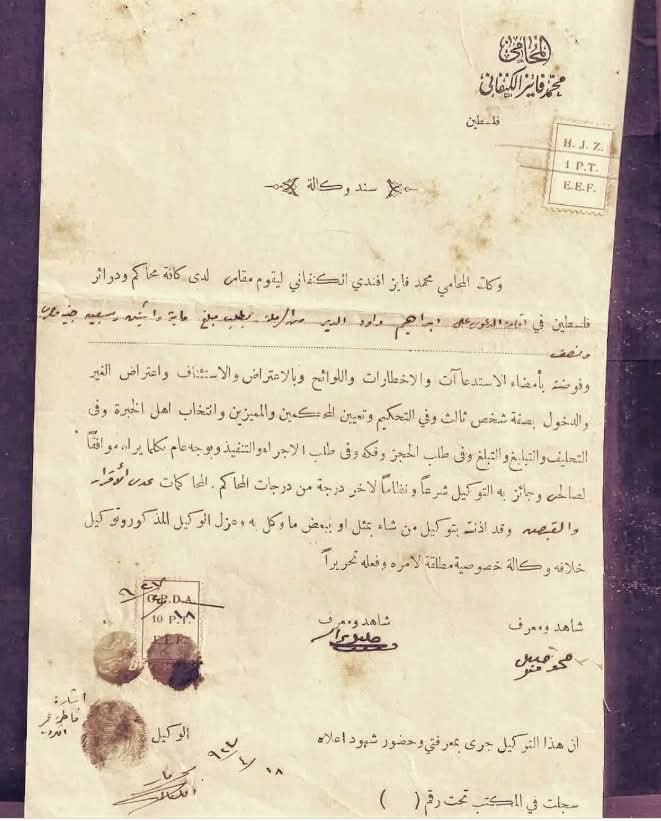 المحامي
محمد فايز الكنفاني
فلسطين
H. J. Z.
1 P.T.
E.E.F.
سند وكالة
وكلت المحامي محمد فايز افندي الكنفاني ليقوم مقامي لدى كافة محاكم ودوائر
فلسطين في اقامة الدعوى على ابراهيم داود الدير من الرملة بطلب مبلغ ماية واثنين وسبعين جنيه
ونصف
وفوضته بأمضاء الاستدعآآت والاخطارات واللوائح وبالاعتراض والاستئناف واعتراض الغير
والدخول بصفة شخص ثالث وفي التحكيم وتعيين المحكمين والمميزين وانتخاب اهل الخبرة وفي
التحليف والتبليغ والتبلغ وفي طلب الحجز وفكه وفي طلب الاجراء والتنفيذ وبوجه عام بكلما يراه موافقاً
لصالحي وجائز به التوكيل شرعاً ونظاماً لاخر درجة من درجات المحاكم . المحاكمات عدى الأقرار
والقبض وقد اذنته بتوكيل من شاء بمثل او ببعض ما وكل به وعزل الوكيل المذكور وتوكيل
خلافه وكالة خصوصية مطلقة لامره وفعله تحريراً
٩٢٧
٤
١٨
O.P.D.A.
10 P.T.
E.E.F.
شاهد ومعرف
شاهد ومعرف
اشارة
فاطمة
الوكيل
ان هذا التوكيل جرى بمعرفتي وحضور شهود اعلاه
١٨/٤/٩٢٧
سجلت في المكتب تحت رقم (   )